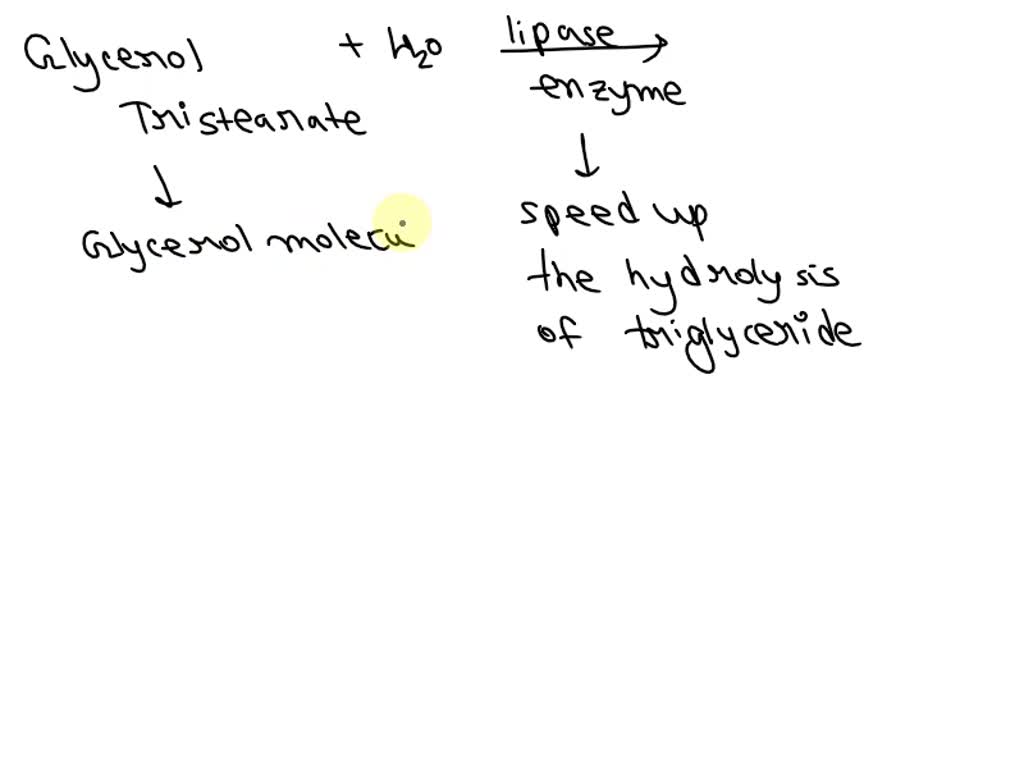 Glycerol + H2O lipase
Tristearate enzyme
↓ ↓
Glycerol molecu speed up
the hydrolysis
of triglyceride